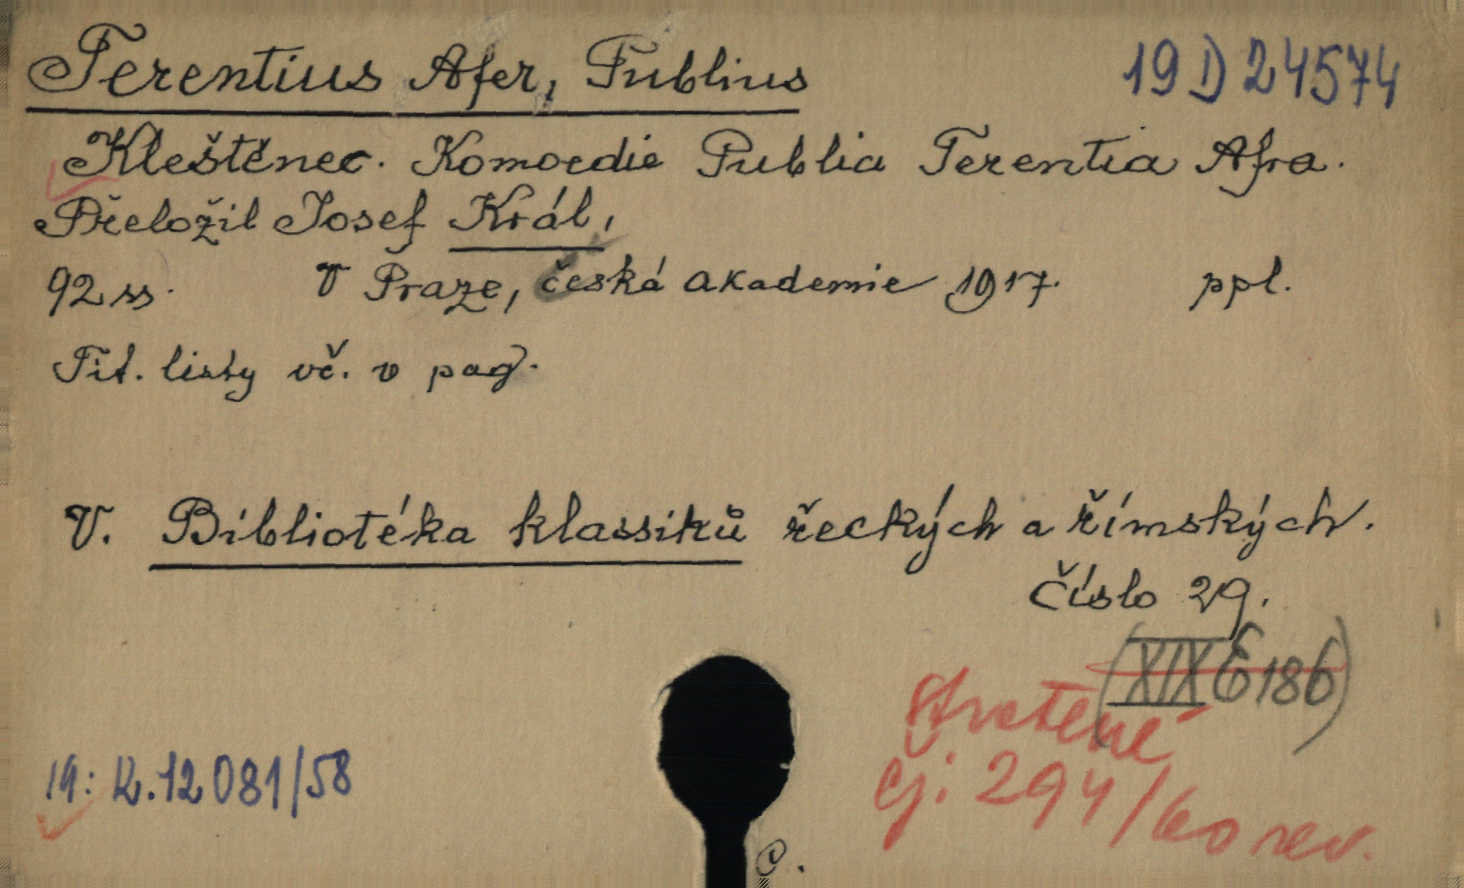 Terentius Afer, Publius
19 D 24574
Kleštěnec. Komoedie Publia Terentia Afra.
Přeložil Josef Král,
92 ss. V Praze, česká akademie 1917. ppl.
Tit. listy vč. v pag.
V. Bibliotéka klassiků řeckých a římských.
Číslo 29.
(XIX E 186)
Stratené
čj: 294/60 rev.
19: K.12081/58
C.